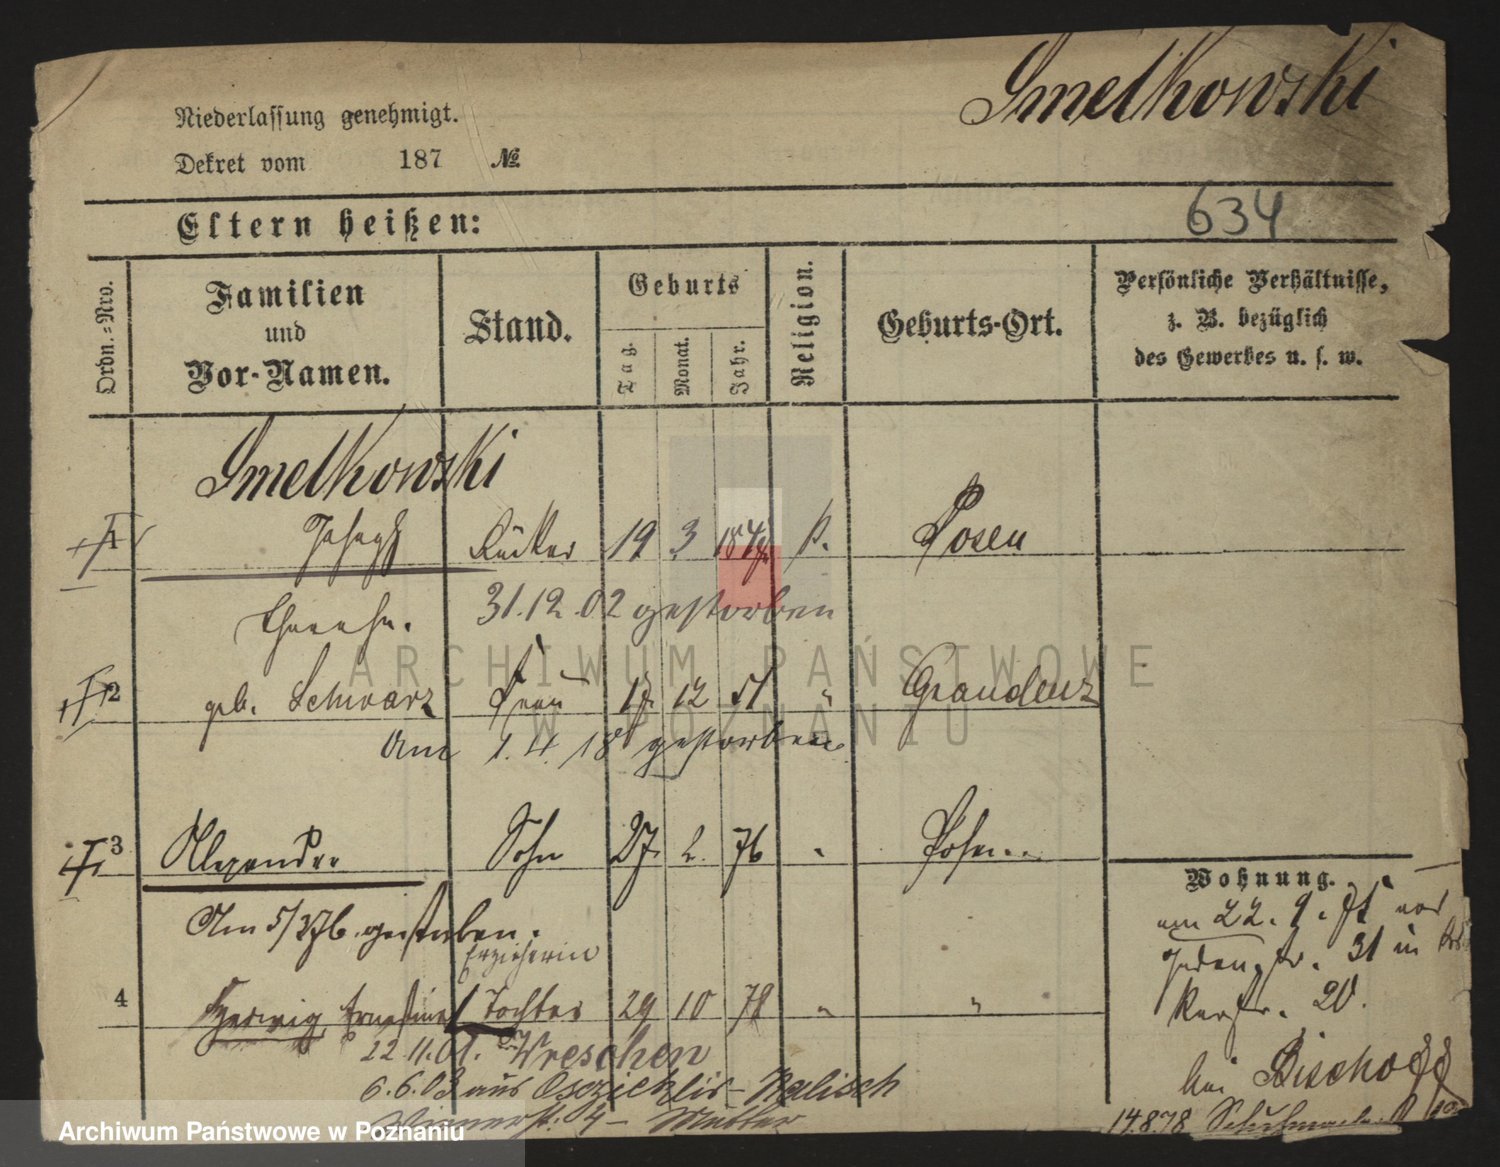 Smelkowski
Niederlassung genehmigt.
Dekret vom 187 №
634
Eltern heißen:
Ordn.-Nro.
Familien
und
Vor-Namen.
Stand.
Geburts
Tag.
Monat.
Jahr.
Religion.
Geburts-Ort.
Persönliche Verhältnisse,
z. B. bezüglich
des Gewerbes u. s. w.
Smelkowski
1 Joseph 19 3 Posen
Ehemahn. 31.12.02 gestorben
2 geb. Schwarz Frau 17. 12 51 " Graudenz
Am 1.4.18 gestorben
3 Alexander Sohn 27. 2. 76 " Posen
Am 5/ 76. gestorben.
Wohnung.
Erzieherin
4 Hedwig Ernestine Tochter 29 10 78 " "
22.11.01. Wreschen
6.6.03 aus Kalisch
Mutter
am 22. 9. von
31 in
20.
bei Bischoff
14.8.78
ARCHIWUM PAŃSTWOWE
W POZNANIU
Archiwum Państwowe w Poznaniu